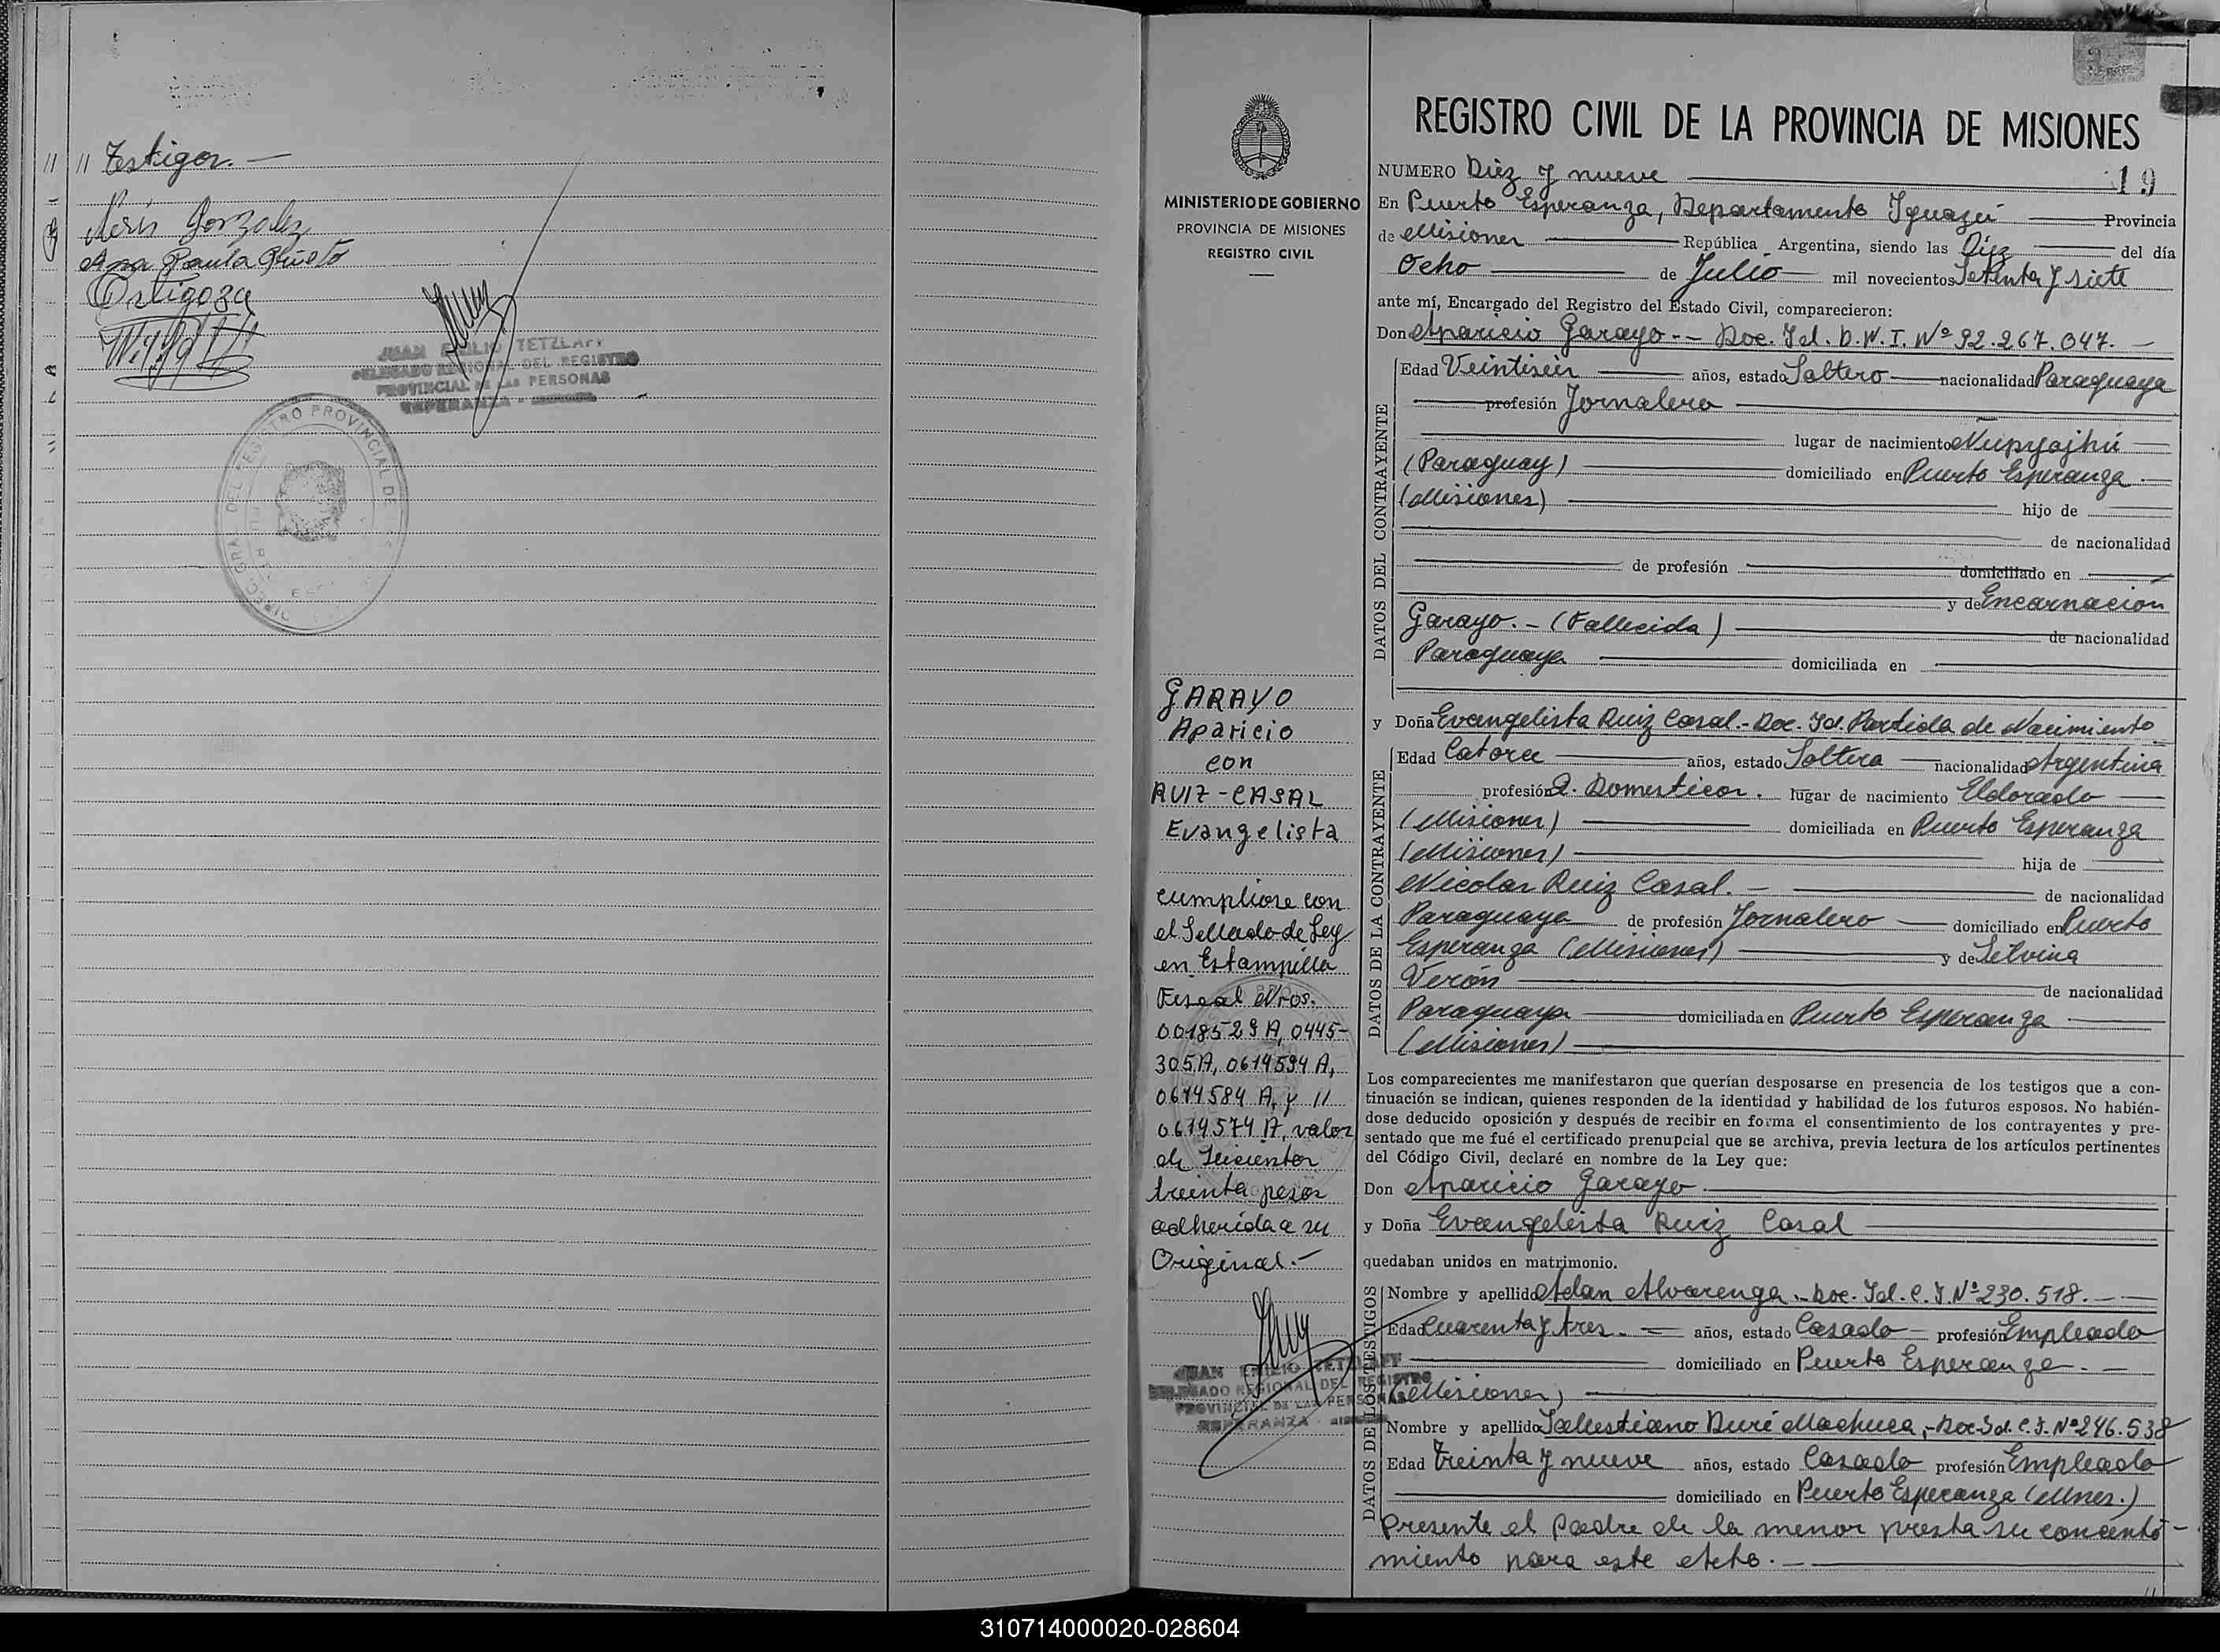 // // Testigos.—
Neris Gonzalez
Ana Paula
Ortigoza
JUAN EMILIO TETZLAFF
DELEGADO REGIONAL DEL REGISTRO
PROVINCIAL DE LAS PERSONAS
ESPERANZA - MISIONES
MINISTERIO DE GOBIERNO
PROVINCIA DE MISIONES
REGISTRO CIVIL
GARAYO
Aparicio
con
RUIZ-CASAL
Evangelista
cumpliose con
el Sellado de Ley
en Estampilla
Fiscal Nros.
0018529 A, 0445-
305A, 0614594 A,
0614584 A, y //
0614574 A, valor
de Seiscientos
treinta pesos
adherida a su
Original.-
JUAN EMILIO TETZLAFF
DELEGADO REGIONAL DEL REGISTRO
PROVINCIAL DE LAS PERSONAS
ESPERANZA - MISIONES
REGISTRO CIVIL DE LA PROVINCIA DE MISIONES
NUMERO Diez y nueve 19
En Puerto Esperanza, Departamento Iguazú Provincia
de Misiones República Argentina, siendo las Diez del día
Ocho de Julio mil novecientos Setenta y siete
ante mí, Encargado del Registro del Estado Civil, comparecieron:
Don Aparicio Garayo -- Doc. Id. D.N.I. Nº 92.267.047.
Edad Veintiseis años, estado Soltero nacionalidad Paraguaya
profesión Jornalero
lugar de nacimiento Ñupyajhú
(Paraguay) domiciliado en Puerto Esperanza.
(Misiones) hijo de
de nacionalidad
de profesión domiciliado en
y de Encarnacion
Garayo.- (Fallecida) de nacionalidad
Paraguaya domiciliada en
y Doña Evangelista Ruiz Casal.- Doc. Id. Partida de Nacimiento
Edad Catorce años, estado Soltera nacionalidad Argentina
profesión Q. Domesticos. lugar de nacimiento Eldorado
(Misiones) domiciliada en Puerto Esperanza
(Misiones) hija de
Nicolas Ruiz Casal.- de nacionalidad
Paraguaya de profesión Jornalero domiciliado en Puerto
Esperanza (Misiones) y de Silvina
Verón de nacionalidad
Paraguaya domiciliada en Puerto Esperanza
(Misiones)
Los comparecientes me manifestaron que querían desposarse en presencia de los testigos que a con-
tinuación se indican, quienes responden de la identidad y habilidad de los futuros esposos. No habién-
dose deducido oposición y después de recibir en forma el consentimiento de los contrayentes y pre-
sentado que me fué el certificado prenupcial que se archiva, previa lectura de los artículos pertinentes
del Código Civil, declaré en nombre de la Ley que:
Don Aparicio Garayo
y Doña Evangelista Ruiz Casal
quedaban unidos en matrimonio.
Nombre y apellido Adan Alvarenga.- Doc. Id. C.I. Nº 230.518.
Edad Cuarenta y tres.- años, estado Casado profesión Empleado
domiciliado en Puerto Esperanza.
(Misiones)
Nombre y apellido Salustiano Duré Machuca,- Doc. Id. C.I. Nº 246.538
Edad Treinta y nueve años, estado Casado profesión Empleado
domiciliado en Puerto Esperanza (Mnes.)
Presente el Padre de la menor presta su concento-
miento para este efeto.-
DATOS DEL CONTRAYENTE
DATOS DE LA CONTRAYENTE
DATOS DE LOS TESTIGOS
310714000020-028604